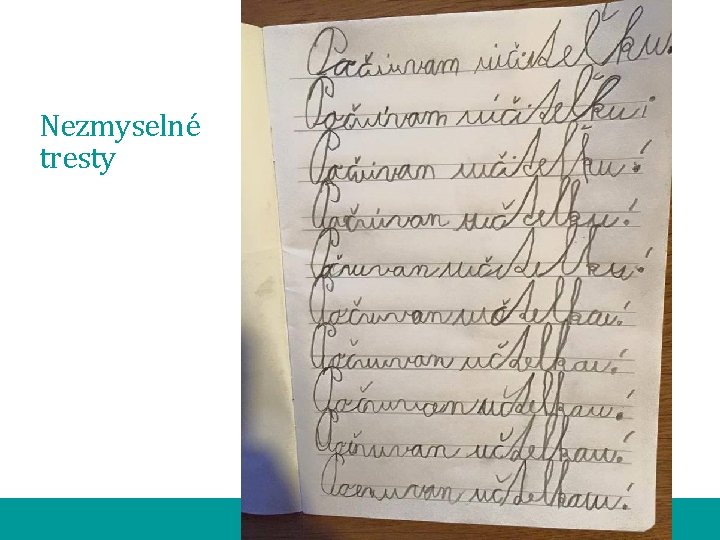 Nezmyselné
tresty
Počúvam účiteľku.
Počúvam účiteľku!
Počúvam učiteľku!
Počúvan učitelku!
Počuvan učitelku!
Počuvan učtelkau!
Počuuvan učtelkau!
Počuuvan učtelkau!
Počuuvan učtelkau!
Pocuuvan učtelkauu!